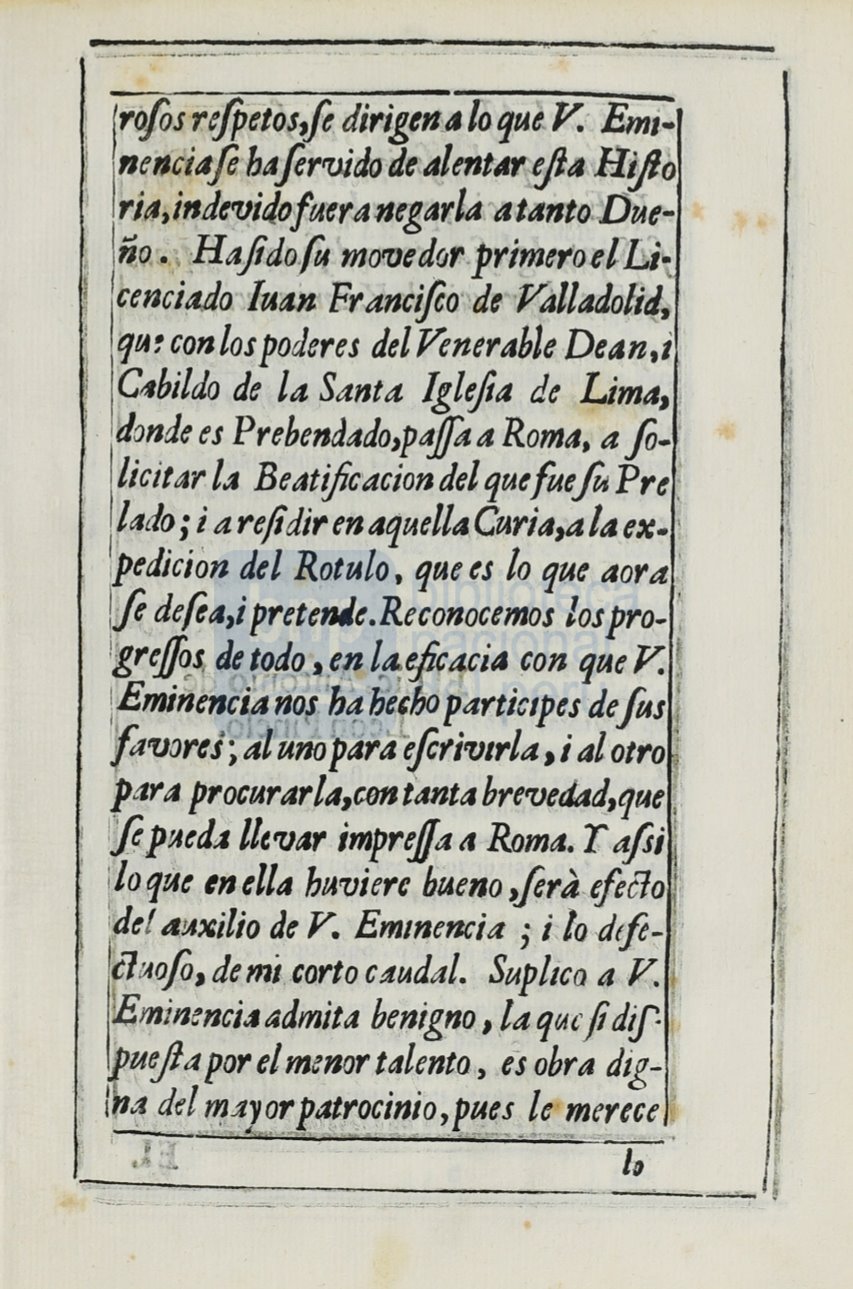 roſos reſpetos, ſe dirigen a lo que V. Emi-
nencia ſe ha ſervido de alentar eſta Hiſto
ria, indevido fuera negarla a tanto Due-
ño. Ha ſido ſu movedor primero el Li-
cenciado Iuan Franciſco de Valladolid,
que con los poderes del Venerable Dean, i
Cabildo de la Santa Igleſia de Lima,
donde es Prebendado, paſſa a Roma, a ſo-
licitar la Beatificacion del que fue ſu Pre
lado; i a reſidir en aquella Curia, a la ex-
pedicion del Rotulo, que es lo que aora
ſe deſea, i pretende. Reconocemos los pro-
greſſos de todo, en la eficacia con que V.
Eminencia nos ha hecho participes de ſus
favores; al uno para eſcrivirla, i al otro
para procurarla, con tanta brevedad, que
ſe pueda llevar impreſſa a Roma. Y aſsi
lo que en ella huviere bueno, ſerà efecto
del auxilio de V. Eminencia; i lo defe-
ctuoſo, de mi corto caudal. Suplico a V.
Eminencia admita benigno, la que ſi diſ-
pueſta por el menor talento, es obra dig-
na del mayor patrocinio, pues le merece
lo
biblioteca
nacional